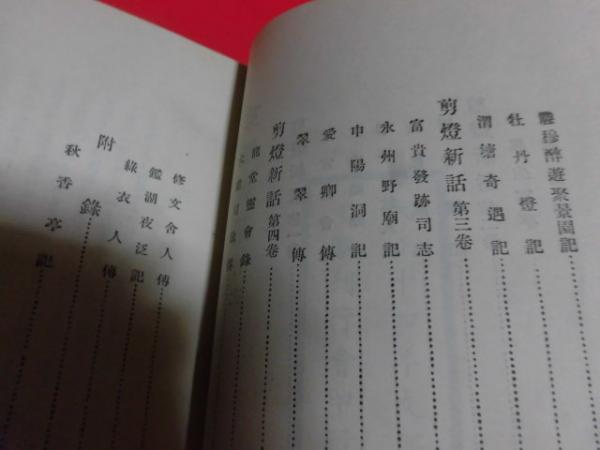 滕穆醉遊聚景園記
牡丹燈記
渭塘奇遇記
剪燈新話 第三卷
富貴發跡司志
永州野廟記
申陽洞記
愛卿傳
翠翠傳
剪燈新話 第四卷
龍堂靈會錄
修文舍人傳
鑑湖夜泛記
綠衣人傳
附錄
秋香亭記